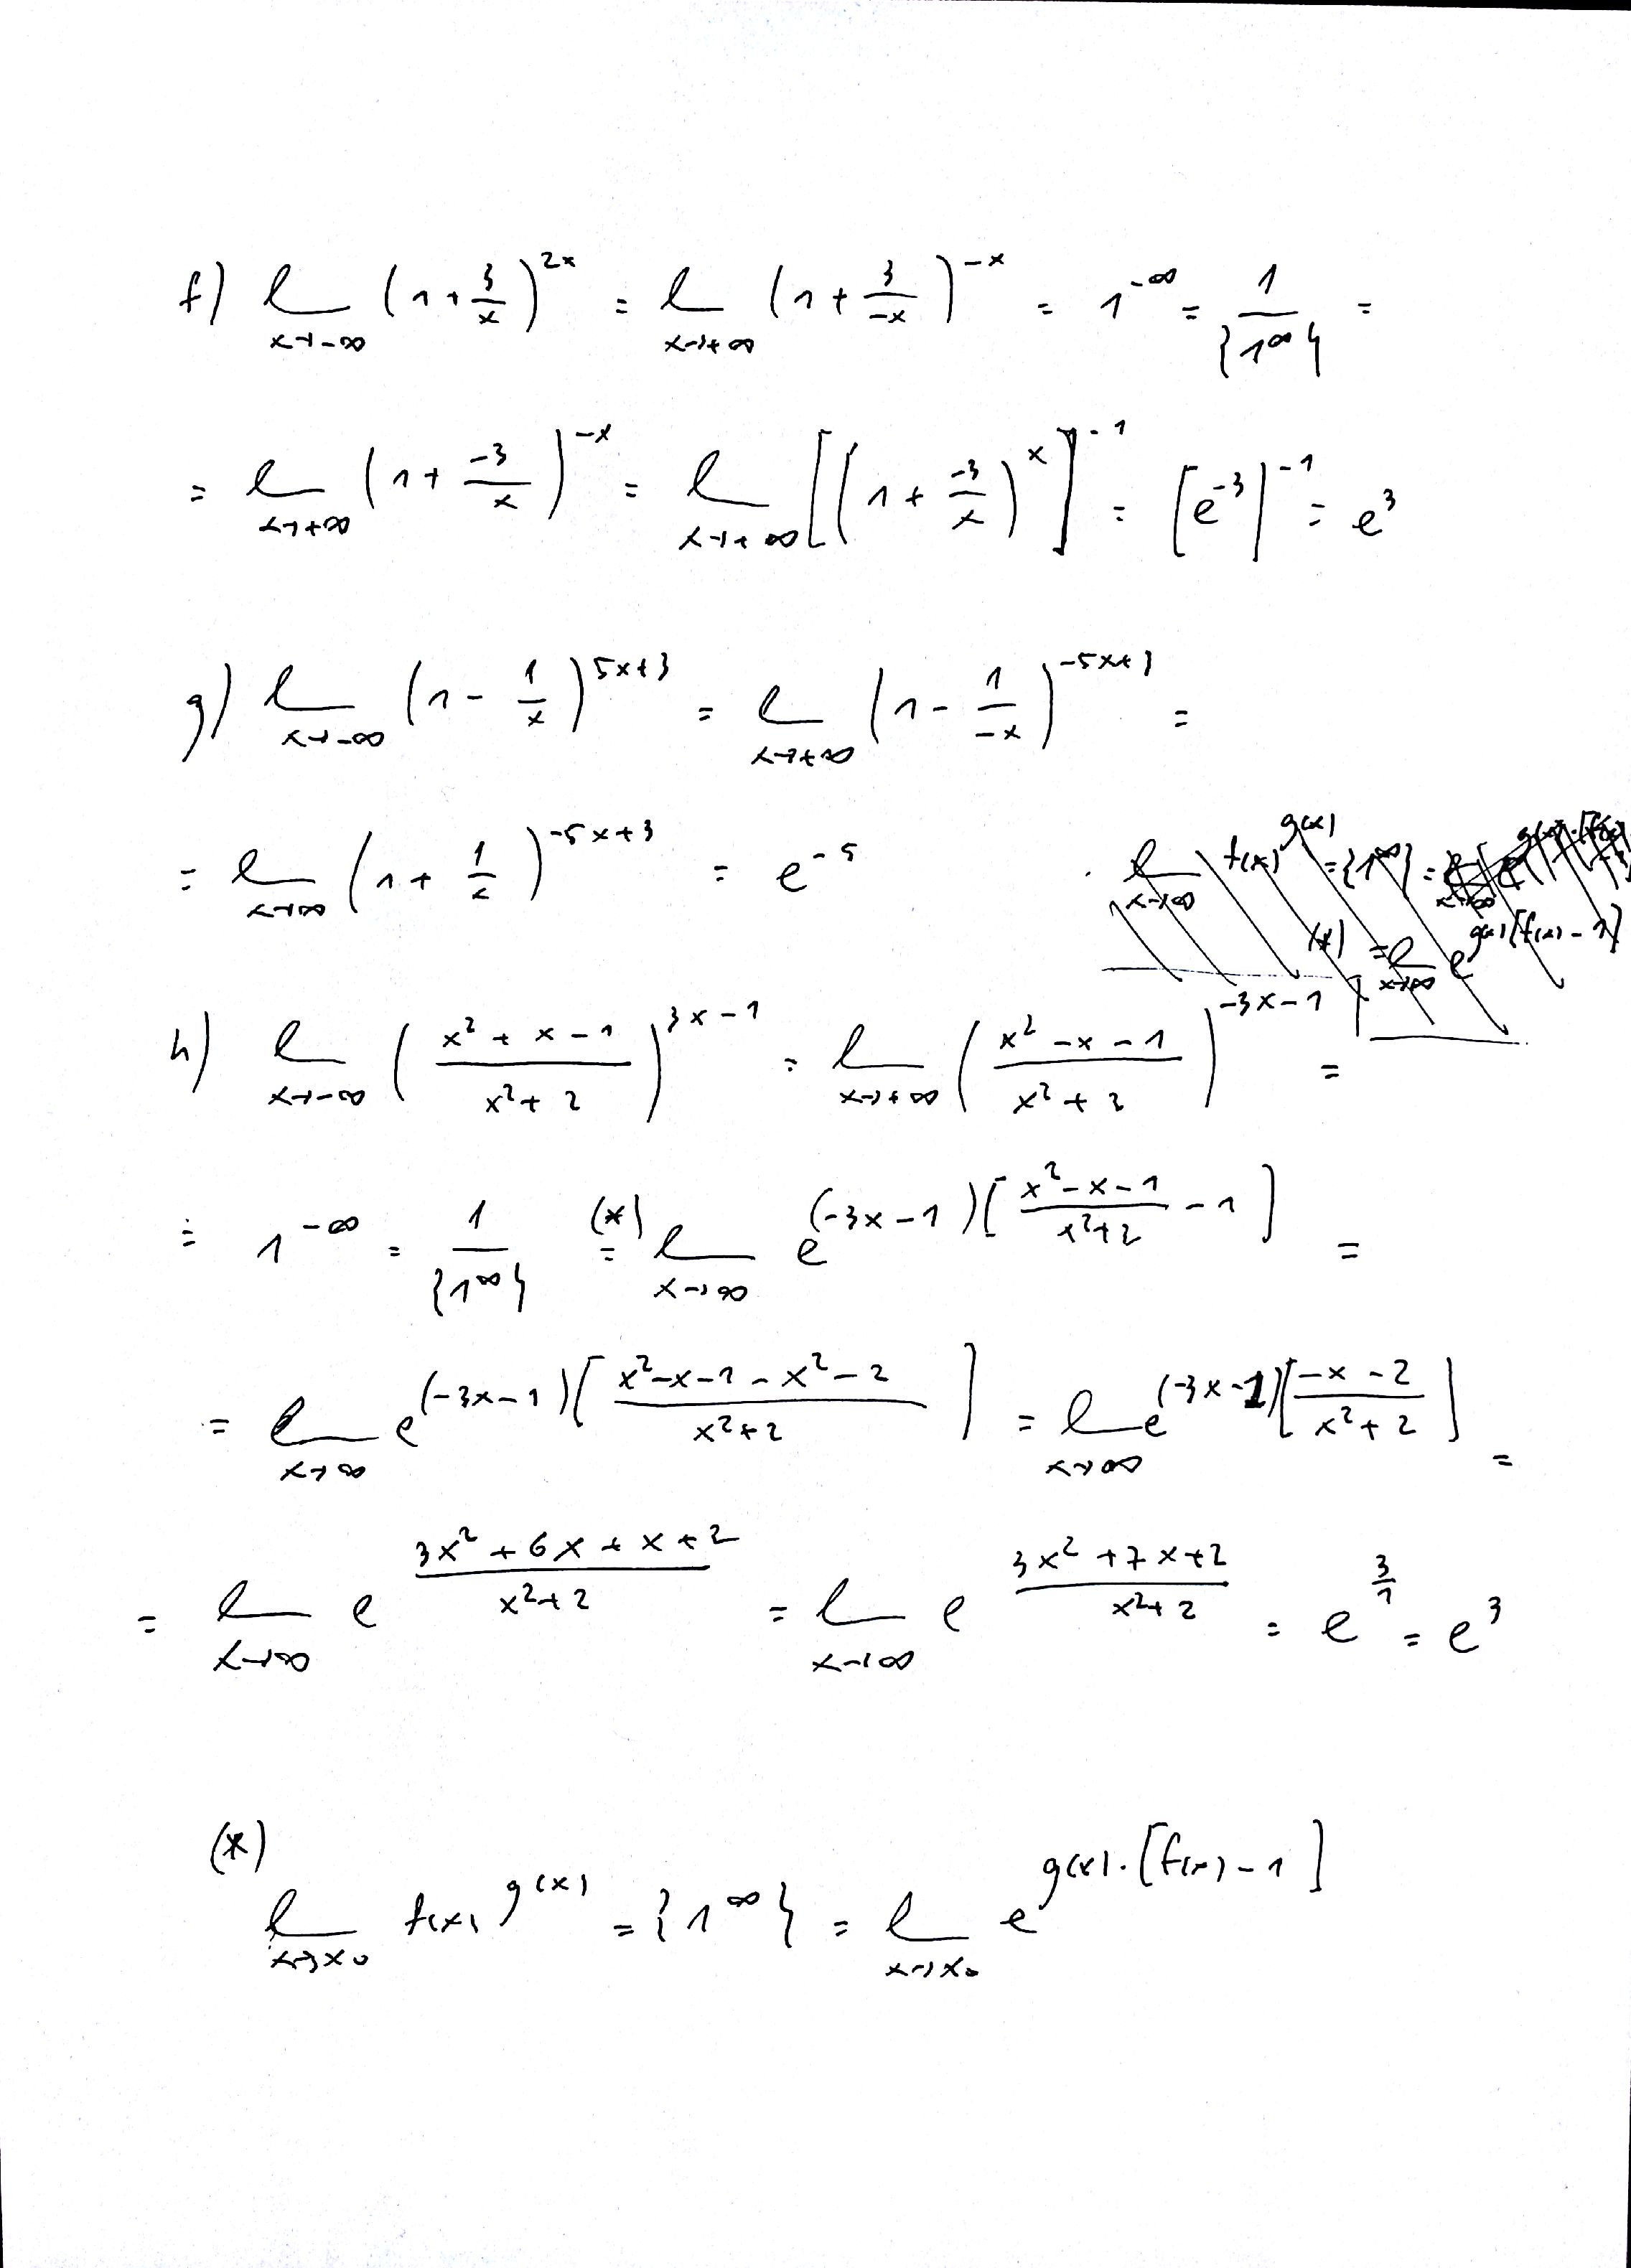 f) lim_{x→-∞} (1 + 3/x)^{2x} = lim_{x→+∞} (1 + 3/-x)^{-x} = 1^{-∞} = 1/{1^∞} =
= lim_{x→+∞} (1 + -3/x)^{-x} = lim_{x→+∞} [(1 + -3/x)^x]^{-1} = [e^{-3}]^{-1} = e^3
g) lim_{x→-∞} (1 - 1/x)^{5x+3} = lim_{x→+∞} (1 - 1/-x)^{-5x+3} =
= lim_{x→∞} (1 + 1/x)^{-5x+3} = e^{-5}
lim_{x→∞} f(x)^{g(x)} = {1^∞} =
(*) = lim_{x→∞} e^{g(x)[f(x)-1]}
h) lim_{x→-∞} (x²+x-1 / x²+2)^{3x-1} = lim_{x→+∞} (x²-x-1 / x²+2)^{-3x-1} =
= 1^{-∞} = 1/{1^∞} (*)= lim_{x→∞} e^{(-3x-1)[x²-x-1 / x²+2 - 1]} =
= lim_{x→∞} e^{(-3x-1)[x²-x-1-x²-2 / x²+2]} = lim_{x→∞} e^{(-3x-1)[-x-2 / x²+2]} =
= lim_{x→∞} e^{3x²+6x+x+2 / x²+2} = lim_{x→∞} e^{3x²+7x+2 / x²+2} = e^{3/1} = e^3
(*)
lim_{x→x₀} f(x)^{g(x)} = {1^∞} = lim_{x→x₀} e^{g(x)·[f(x)-1]}